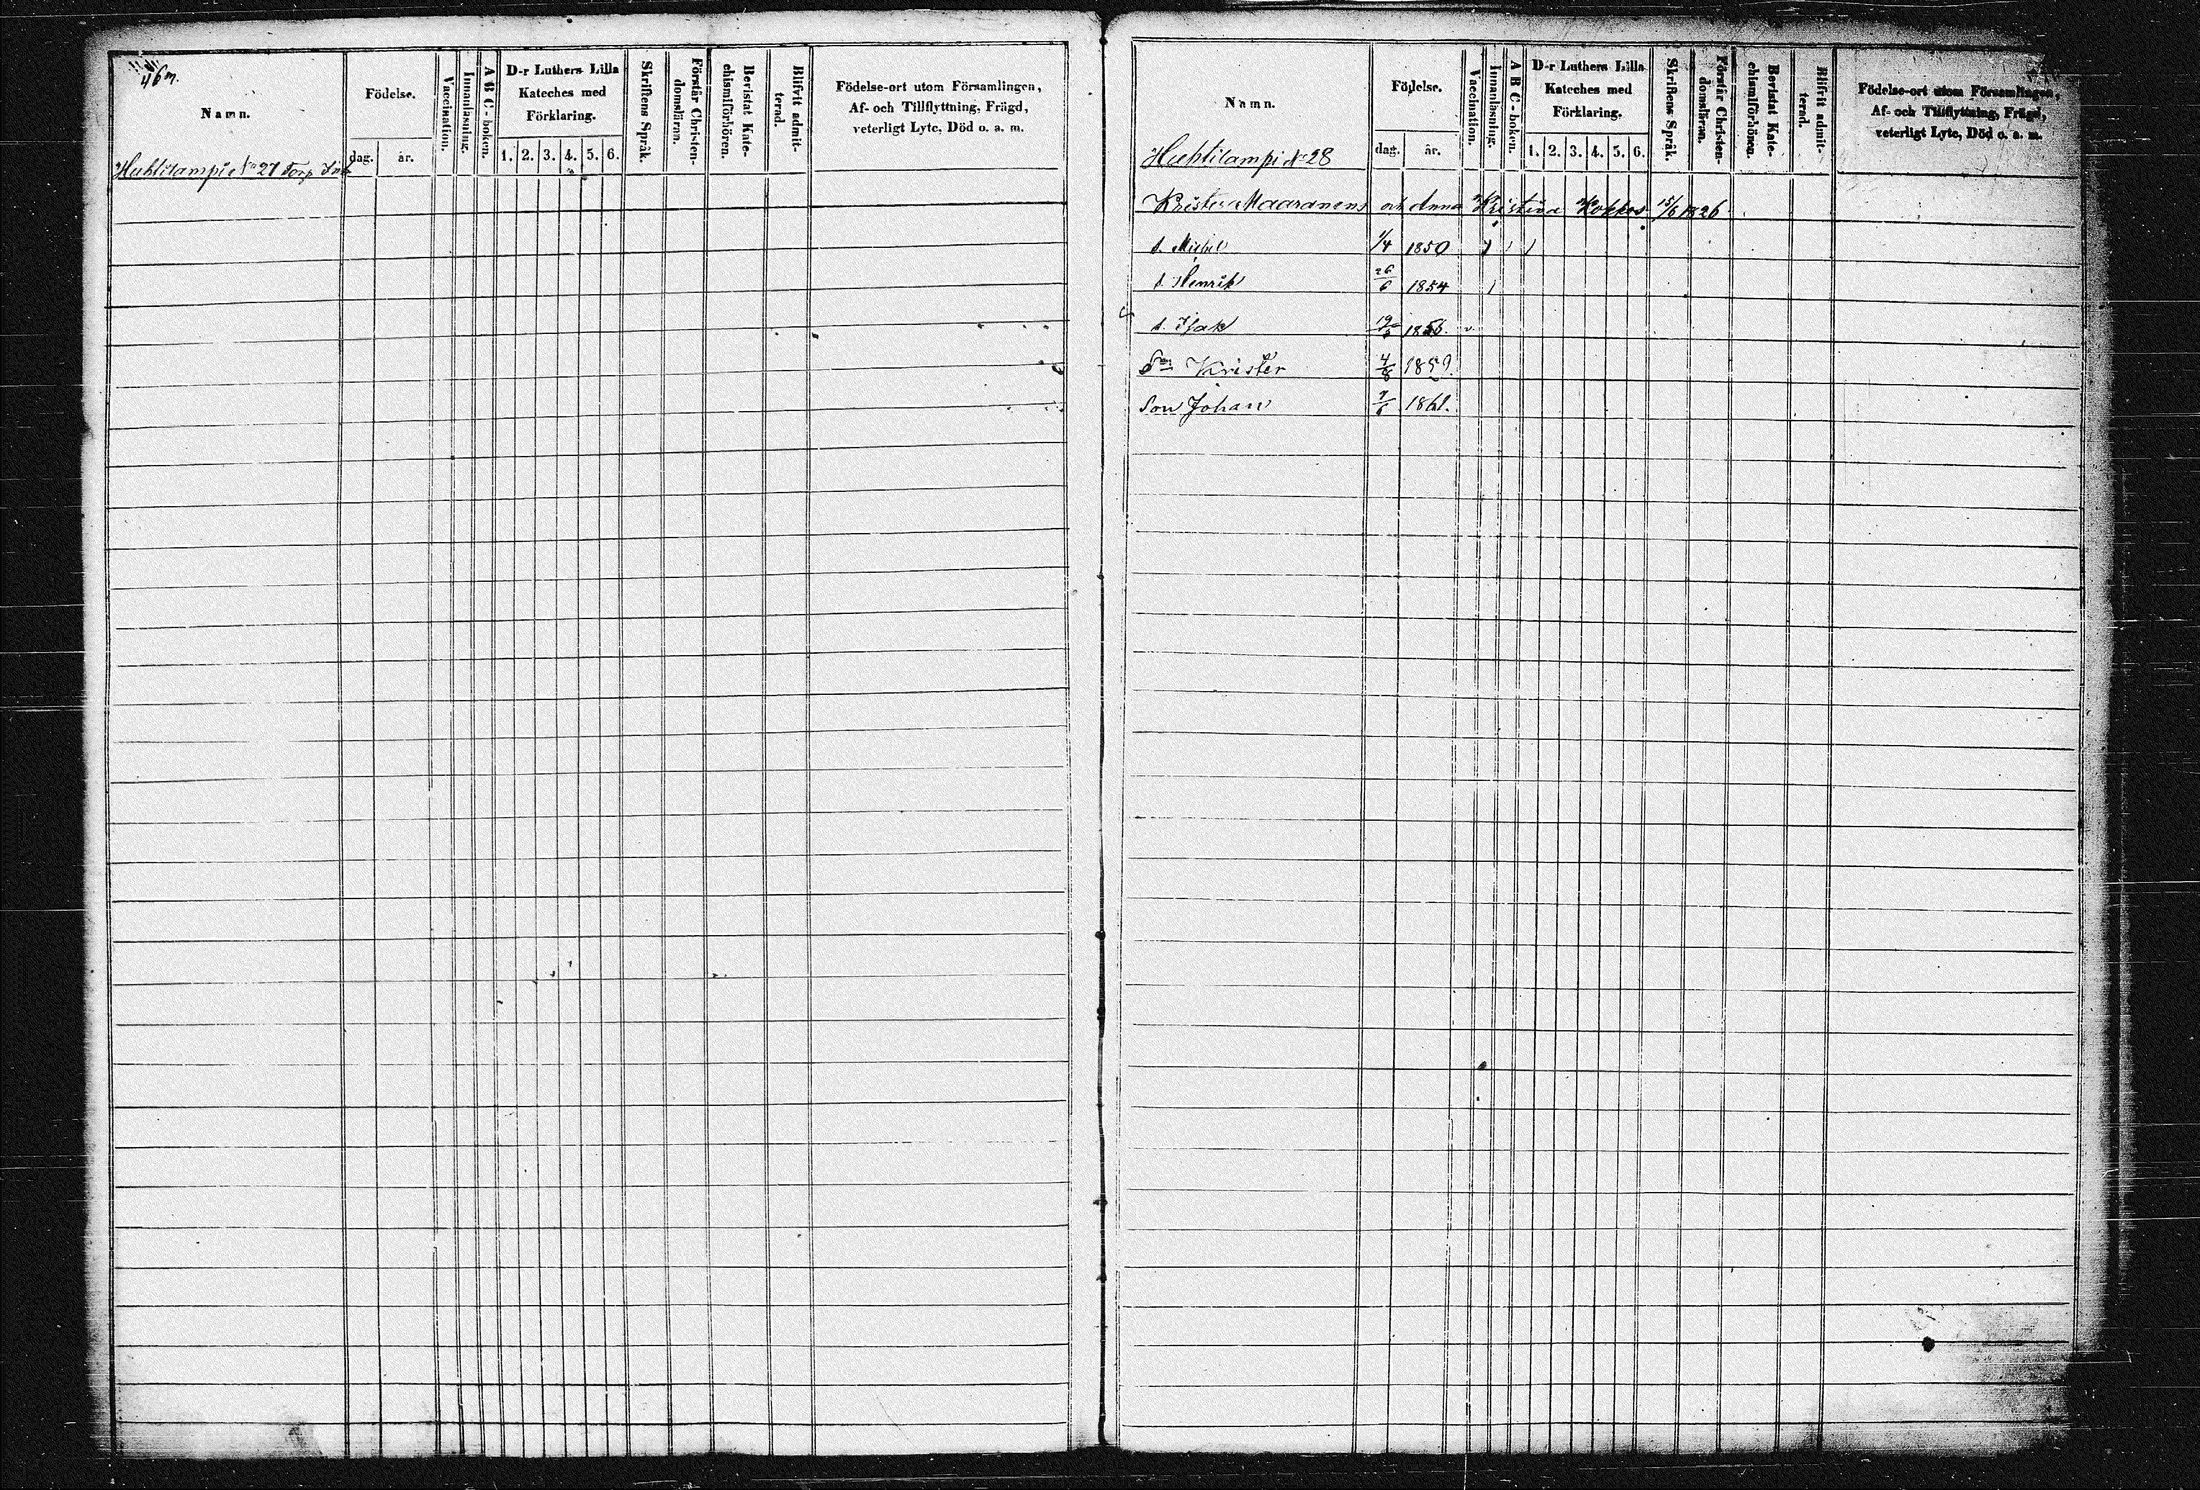 46
Namn.
Födelse.
dag.
år.
Vaccination.
Innanläsning.
ABC-boken.
D-r Luthers Lilla
Kateches med
Förklaring.
1. 2. 3. 4. 5. 6.
Skriftens Språk.
Förstår Christen-
domsläran.
Bevistat Kate-
chismiförhören.
Blifvit admit-
terad.
Födelse-ort utom Församlingen,
Af- och Tillflyttning, Frägd,
veterligt Lyte, Död o. a. m.
Huhtilampi No 27 Torp
Namn.
Födelse.
dag.
år.
Vaccination.
Innanläsning.
ABC-boken.
D-r Luthers Lilla
Kateches med
Förklaring.
1. 2. 3. 4. 5. 6.
Skriftens Språk.
Förstår Christen-
domsläran.
Bevistat Kate-
chismiförhören.
Blifvit admit-
terad.
Födelse-ort utom Församlingen,
Af- och Tillflyttning, Frägd,
veterligt Lyte, Död o. a. m.
Huhtilampi No 28
Krister Maaranens och Anna Kristina Kokkos 15/6 1826
s. Michel 1/4 1850
s. Henrik 26/6 1854
s. Isak 1856.
Son Krister 4/8 1859.
Son Johan 7/6 1861.